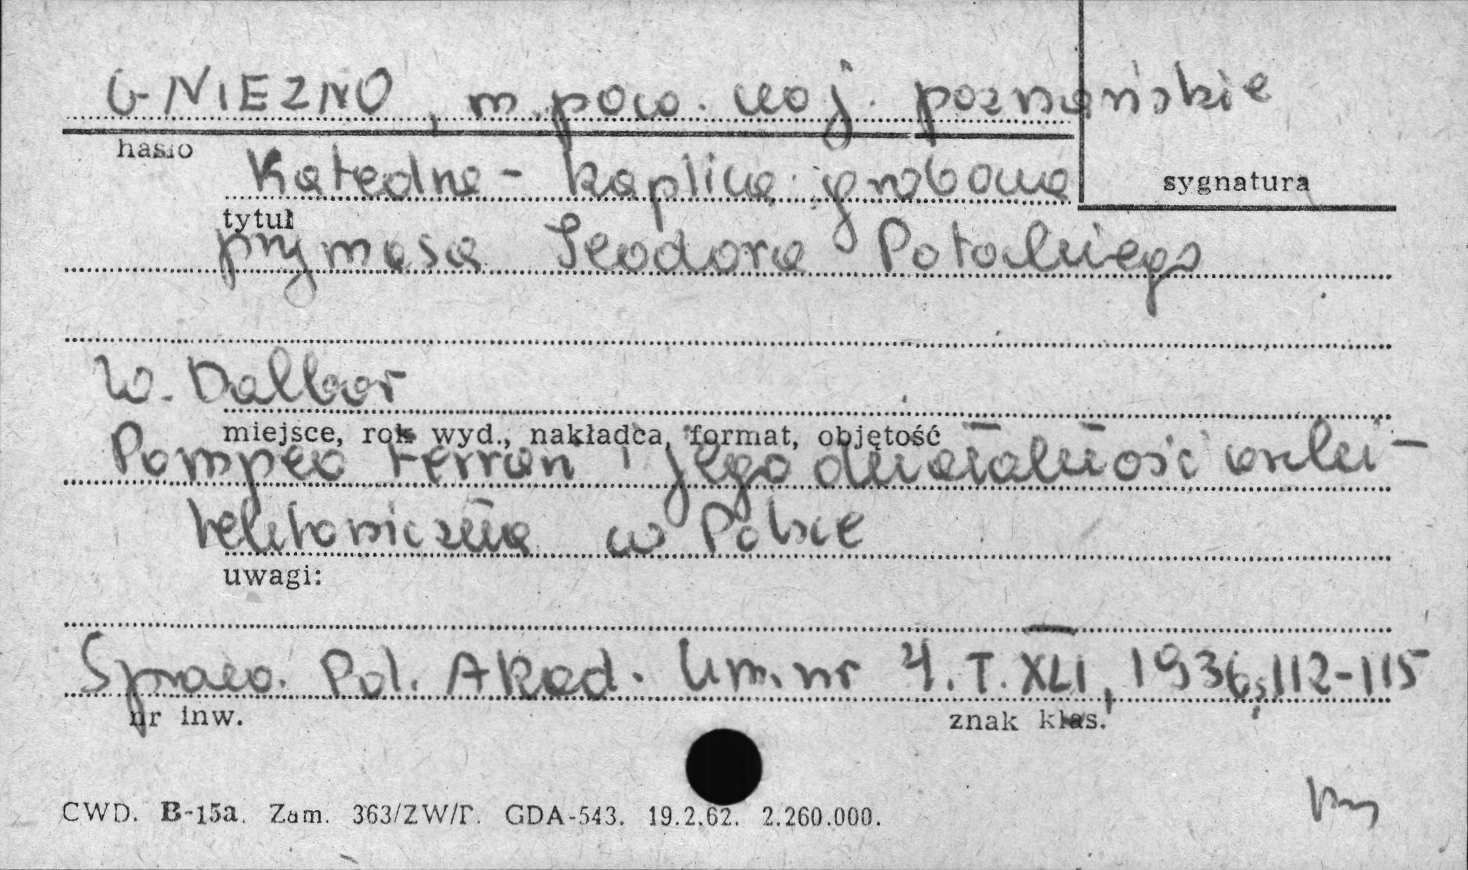 GNIEZNO, m. pow. woj. poznańskie
hasło
Katedra - kaplica grobowa
sygnatura
tytuł
prymasa Teodora Potockiego
W. Dalbor
miejsce, rok wyd., nakładca, format, objętość
Pompeo Ferrari i jego działalność archi-
tektoniczna w Polsce
uwagi:
Spraw. Pol. Akad. Um. nr 4. T. XLI, 1936, s. 112-115
nr inw.
znak klas.
CWD. B-15a. Zam. 363/ZW/P. GDA-543. 19.2.62. 2.260.000.